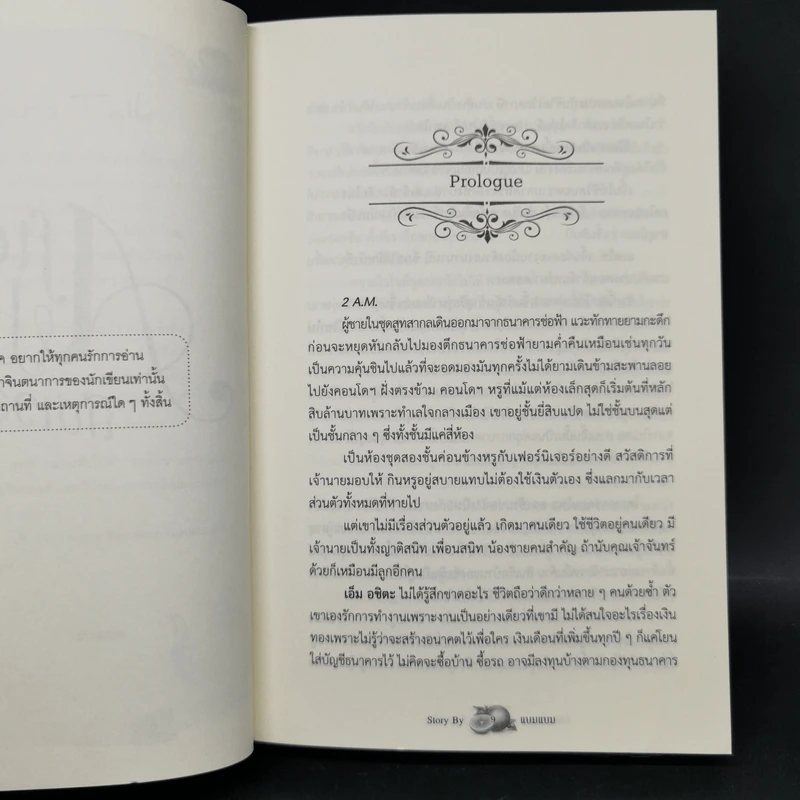 ค อยากให้ทุกคนรักการอ่าน
าจินตนาการของนักเขียนเท่านั้น
ถานที่ และเหตุการณ์ใด ๆ ทั้งสิ้น
Prologue
2 A.M.
ผู้ชายในชุดสูทสากลเดินออกมาจากธนาคารช่อฟ้า แวะทักทายยามกะดึก
ก่อนจะหยุดหันกลับไปมองตึกธนาคารช่อฟ้ายามค่ำคืนเหมือนเช่นทุกวัน
เป็นความคุ้นชินไปแล้วที่จะอดมองมันทุกครั้งไม่ได้ยามเดินข้ามสะพานลอย
ไปยังคอนโดฯ ฝั่งตรงข้าม คอนโดฯ หรูที่แม้แต่ห้องเล็กสุดก็เริ่มต้นที่หลัก
สิบล้านบาทเพราะทำเลใจกลางเมือง เขาอยู่ชั้นยี่สิบแปด ไม่ใช่ชั้นบนสุดแต่
เป็นชั้นกลาง ๆ ซึ่งทั้งชั้นมีแค่สี่ห้อง
เป็นห้องชุดสองชั้นค่อนข้างหรูกับเฟอร์นิเจอร์อย่างดี สวัสดิการที่
เจ้านายมอบให้ กินหรูอยู่สบายแทบไม่ต้องใช้เงินตัวเอง ซึ่งแลกมากับเวลา
ส่วนตัวทั้งหมดที่หายไป
แต่เขาไม่มีเรื่องส่วนตัวอยู่แล้ว เกิดมาคนเดียว ใช้ชีวิตอยู่คนเดียว มี
เจ้านายเป็นทั้งญาติสนิท เพื่อนสนิท น้องชายคนสำคัญ ถ้านับคุณเจ้าจันทร์
ด้วยก็เหมือนมีลูกอีกคน
เอ็ม อชิตะ ไม่ได้รู้สึกขาดอะไร ชีวิตถือว่าดีกว่าหลาย ๆ คนด้วยซ้ำ ตัว
เขาเองรักการทำงานเพราะงานเป็นอย่างเดียวที่เขามี ไม่ได้สนใจอะไรเรื่องเงิน
ทองเพราะไม่รู้ว่าจะสร้างอนาคตไว้เพื่อใคร เงินเดือนที่เพิ่มขึ้นทุกปี ๆ ก็แค่โยน
ใส่บัญชีธนาคารไว้ ไม่คิดจะซื้อบ้าน ซื้อรถ อาจมีลงทุนบ้างตามกองทุนธนาคาร
Story By 9 แบมแบม